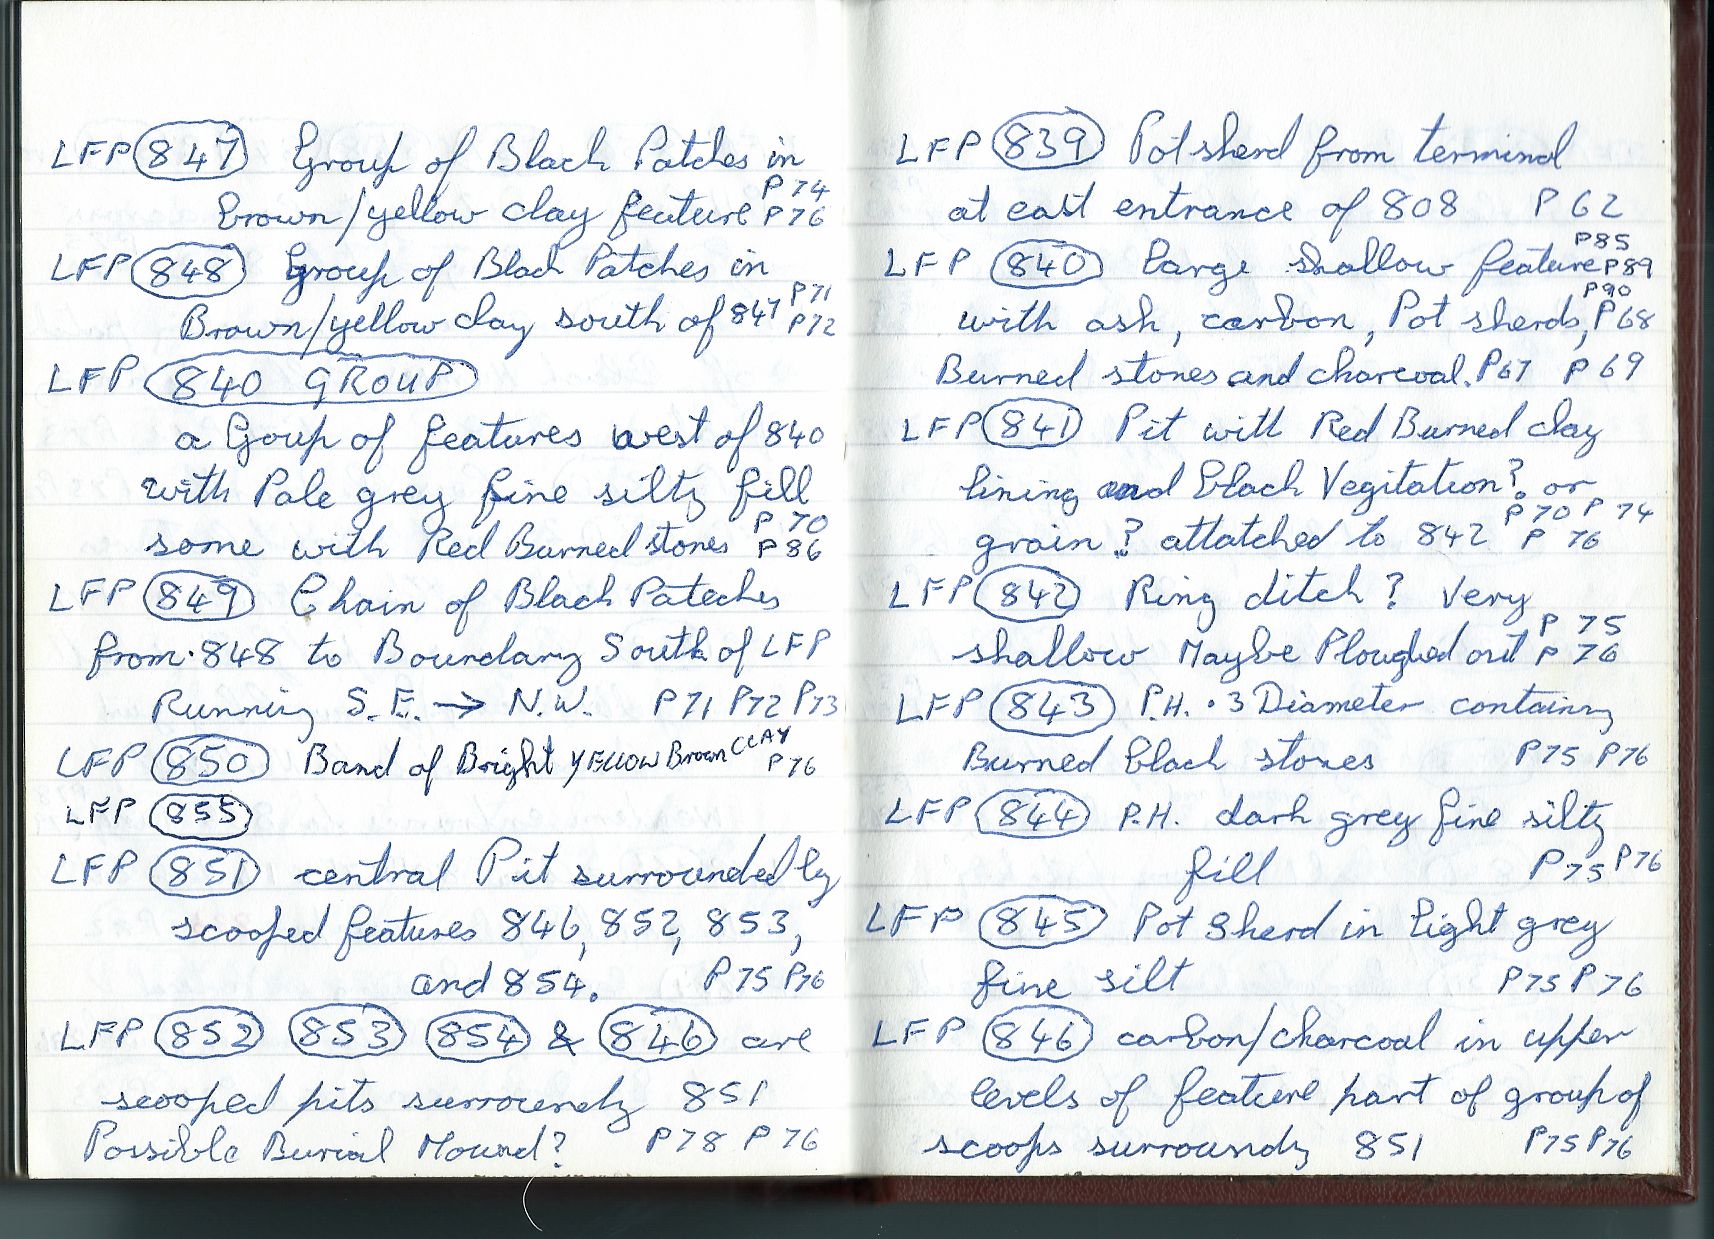 LFP 847 Group of Black Patches in
P 74
Brown/yellow clay feature P 76
LFP 848 Group of Black Patches in
P 71
Brown/yellow clay south of 847 P 72
LFP 840 GROUP
a Goup of features west of 840
with Pale grey fine silty fill
P 70
some with Red Burned stones P 86
LFP 849 Chain of Black Pateches
from 848 to Boundary South of LFP
Running S.E. → N.W. P71 P72 P73
LFP 850 Band of Bright YELLOW Brown CLAY
P 76
LFP 855
LFP 851 central Pit surrounded by
scooped features 846, 852, 853,
and 854. P 75 P76
LFP 852 853 854 & 846 are
scooped pits surroundg 851
Possible Burial Mound? P78 P 76
LFP 839 Pot sherd from terminal
at east entrance of 808 P 62
P85
LFP 840 Large shallow feature P89
P90
with ash, carbon, Pot sherds, P68
Burned stones and charcoal. P67 P 69
LFP 841 Pit with Red Burned clay
lining and black Vegitation? or
P 70 P 74
grain? attatched to 842 P 76
LFP 842 Ring ditch? Very
P 75
shallow Maybe Ploughed out P 76
LFP 843 P.H. ·3 Diameter containing
Burned black stones P75 P76
LFP 844 P.H. dark grey fine silty
fill P75 P76
LFP 845 Pot Sherd in light grey
fine silt P75 P76
LFP 846 carbon/charcoal in upper
levels of feature part of group of
scoops surroundg 851 P75 P76